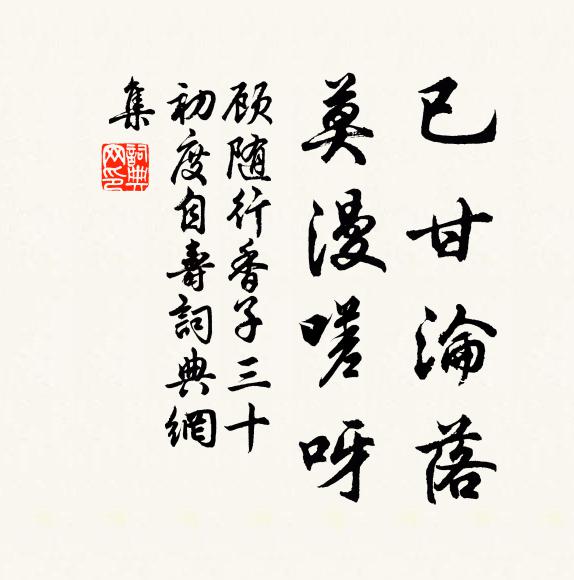 已甘淪落
莫漫嗟呀
顾随行香子三十
初度自壽詞典網
集
詞典网印